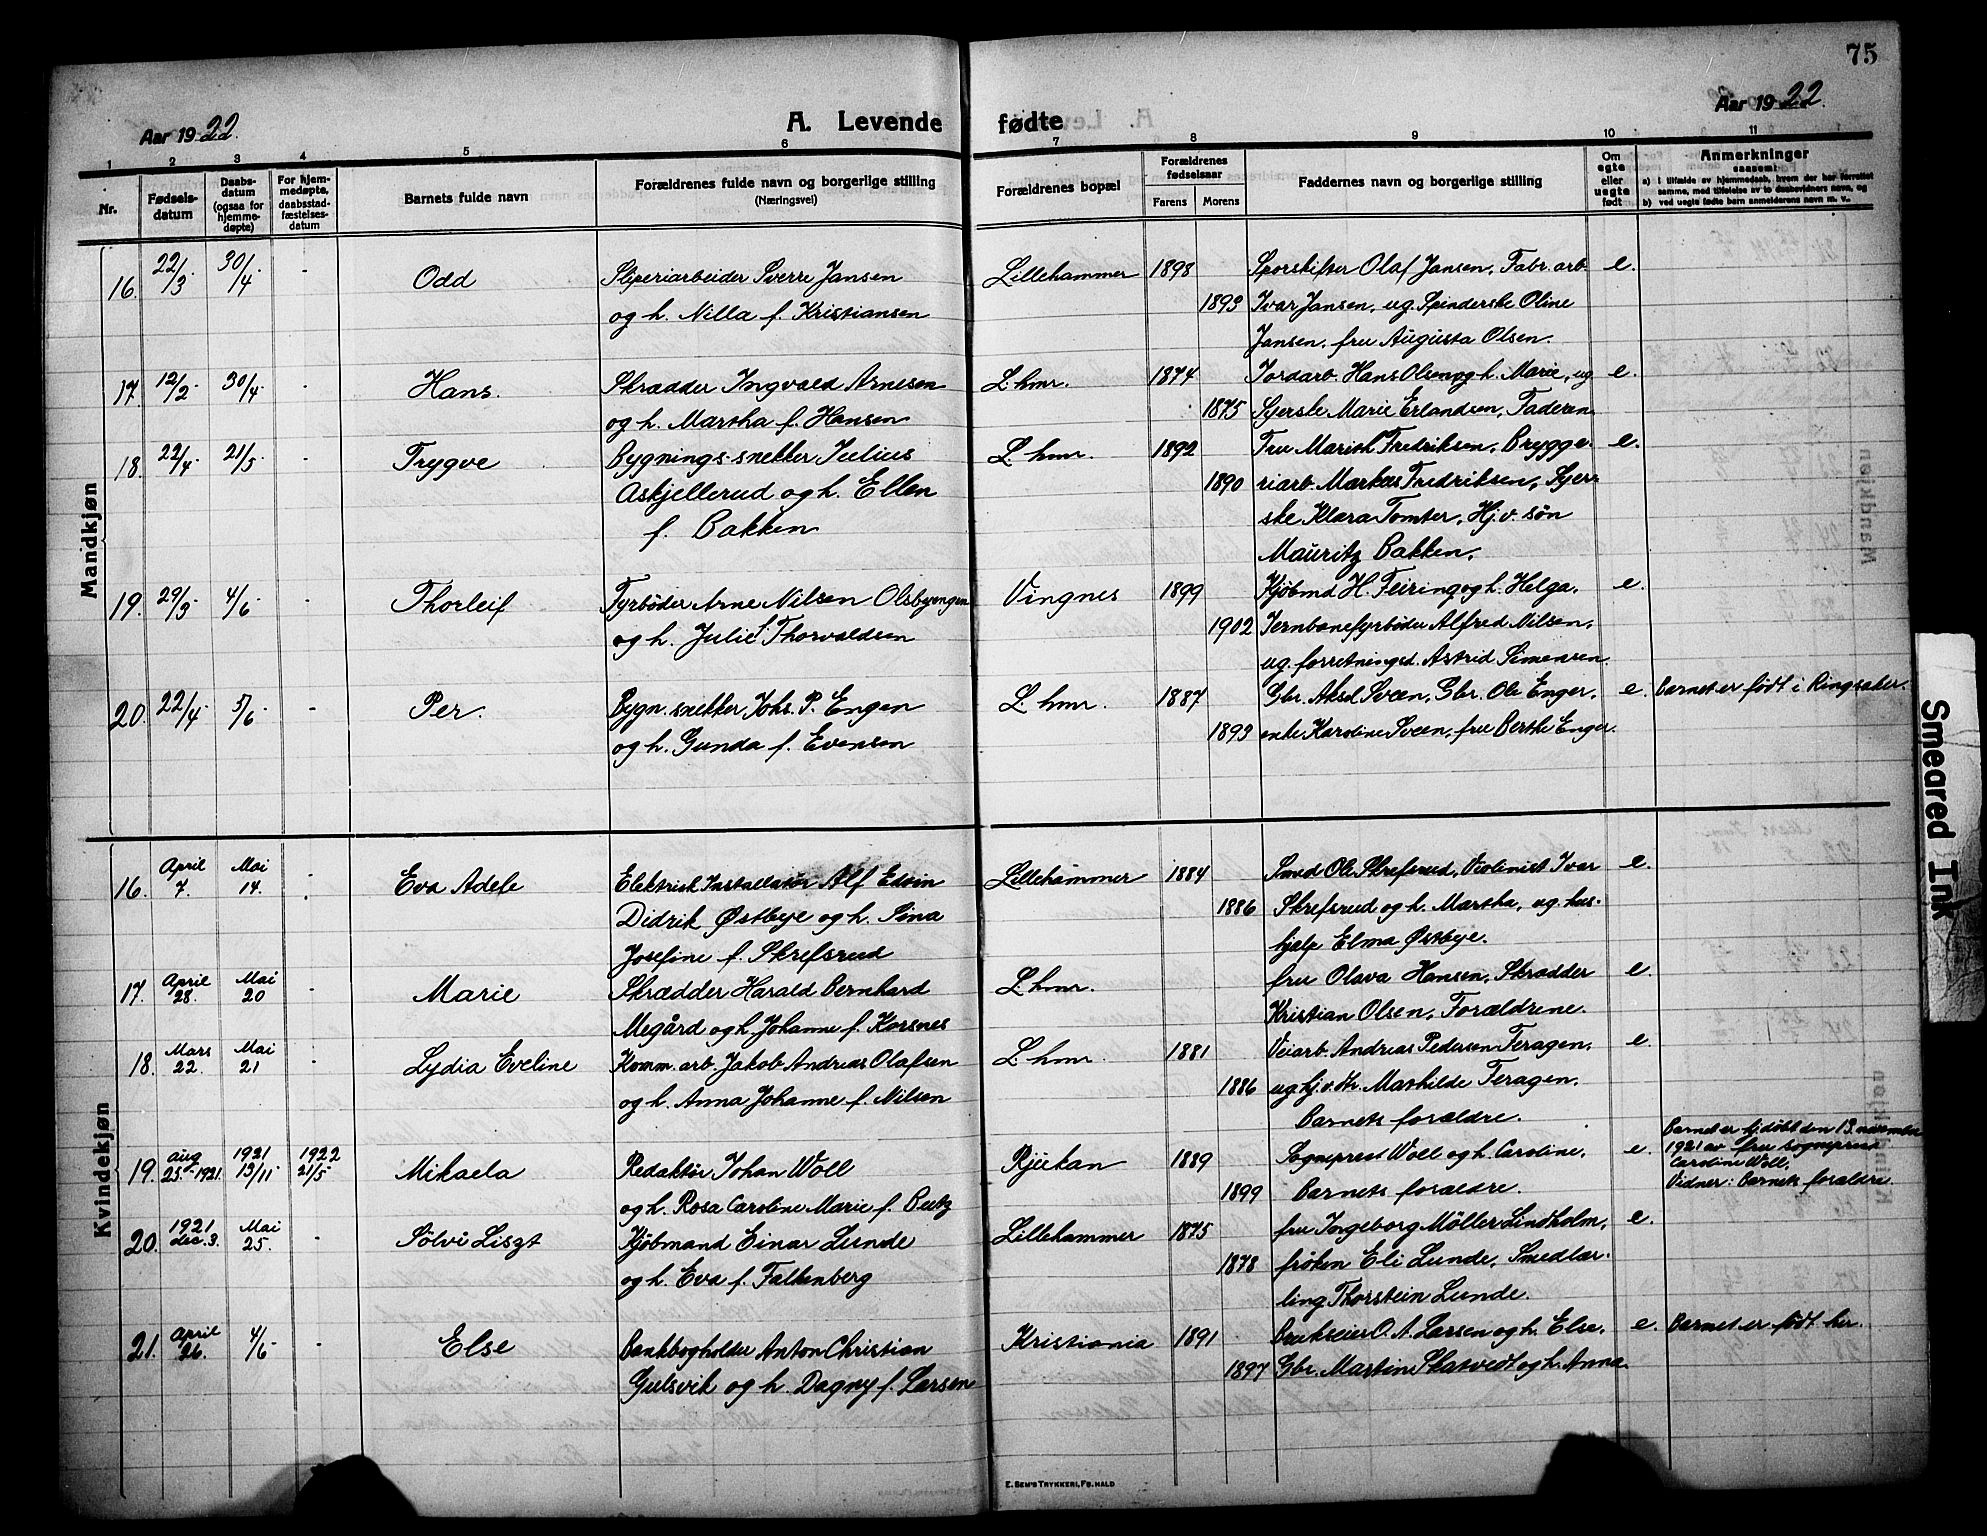 75
Aar 1922.
A. Levende fødte
Aar 1922.
1 2 3 4 5 6 7 8 9 10 11
Nr.
Fødsels-
datum
Daabs-
datum
(ogsaa for
hjemme-
døpte)
For hjem-
medøpte,
daabsstad-
fæstelses-
datum
Barnets fulde navn
Forældrenes fulde navn og borgerlige stilling
(Næringsvei)
Forældrenes bopæl
Forældrenes
fødselsaar
Farens Morens
Faddernes navn og borgerlige stilling
Om
egte
eller
uegte
født
Anmerkninger
saasom:
a) i tilfælde av hjemmedaab, hvem der har forrettet
samme, med tilføielse av to daabsvidners navn, og
b) ved uegte fødte barn anmelderens navn m. v.
Mandkjøn
16. 22/3 30/4. - Odd Sliperiarbeider Sverre Jansen Lillehammer 1898 Sporskifter Olaf Jansen, Fabr. arb. e.
og h. Nilla f. Kristiansen 1893 Ivar Jansen, ug. Spinderske Oline
Jansen, fru Augusta Olsen.
17. 12/2 30/4. - Hans. Skrædder Ingvald Arnesen L.hmr. 1874 Jordarb. Hans Olsen og h. Marie, ug e.
og h. Martha f. Hansen 1875 Syerske Marie Erlandsen, Faderen
18. 22/4 21/5 - Trygve Bygnings-snekker Julius L.hmr. 1892 Fru Marith Fredriksen, Brygge- e.
Askjellerud og h. Ellen 1890 riarb. Markus Fredriksen, Syer-
f. Bakken ske Klara Tomter, Hj.v. søn
Mauritz Bakken.
19. 29/3 4/6 - Thorleif Fyrbøder Arne Nilsen Olsbyengen Vingnes 1899 Kjøbmd H. Feiring og h. Helga, e.
og h. Julie f. Thorvaldsen 1902 Jernbanefyrbøder Alfred Nilsen,
ug. forretningsd. Astrid Simensen
20. 22/4 5/6 - Per. Bygn. snekker Johs. P. Engen L.hmr. 1887 Gbr. Aksel Sveen, Gbr. Ole Enger, e. Barnet er født i Ringsaker.
og h. Gunda f. Evensen 1893 enke Karoline Sveen, fru Berthe Enger.
Kvindekjøn
16. April 7. Mai 14. - Eva Adele Elektrisk Installatør Alf Edvin Lillehammer 1884 Smed Ole Skrefsrud, Violinist Ivar e.
Didrik Østbye og h. Sina 1886 Skrefsrud og h. Martha, ug. hus-
Josefine f. Skrefsrud hjælp Elma Østbye.
17. April 28. Mai 20 - Marie Skrædder Harald Bernhard L.hmr. fru Olava Hansen, Skrædder e.
Megård og h. Johanne f. Korsnes Kristian Olsen, Forældrene.
18. Mars 22. Mai 21 - Lydia Eveline Komm. arb. Jakob Andreas Olafsen L.hmr. 1881 Veiarb. Andreas Pedersen Feragen, e.
og h. Anna Johanne f. Nilsen 1886 ug. hj.v. dt. Mathilde Feragen.
Barnets forældre.
19. aug 25. 1921. 1921 13/11 1922 21/5 Mikaela Redaktør Johan Woll Rjukan 1889 Sogneprest Woll og h. Caroline, e. Barnet er hj.døbt den 13. november
1921 av fru sogneprest
Caroline Woll.
Vidner: Barnets forældre
og h. Rosa Caroline Marie f. Beutz 1899 Barnets forældre.
20. 1921 dec. 3. Mai 25. - Sölvi Liszt Kjøbmand Einar Lunde Lillehammer 1875 fru Ingeborg Möller Lindholm, e.
og h. Eva f. Falkenberg 1878 frøken Eli Lunde, Smedlær-
ling Thorstein Lunde.
21. April 26. 4/6 - Else Bankbogholder Anton Christian Kristiania 1891 Brukseier O. A. Larsen og h. Else, e. Barnet er født her.
Gulsvik og h. Dagny f. Larsen 1897 Gbr. Martin Skatvedt og h. Anna.
E. SEM'S TRYKKERI, FR.HALD
Smeared Ink